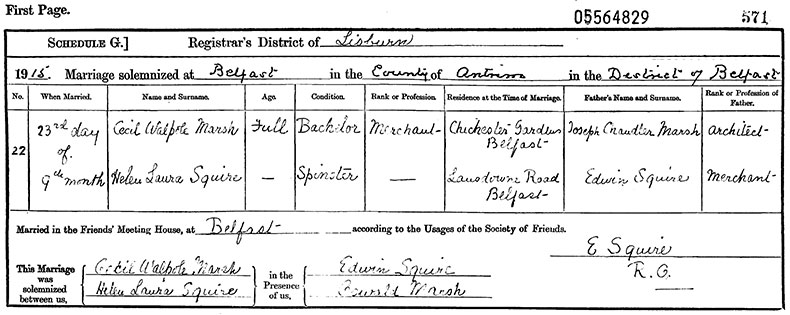 First Page.
05564829 571
SCHEDULE G.] Registrar's District of Lisburn
1915. Marriage solemnized at Belfast in the County of Antrim in the District of Belfast
No. When Married. Name and Surname. Age. Condition. Rank or Profession. Residence at the Time of Marriage. Father's Name and Surname. Rank or Profession of Father.
22
23rd day of 9th month
Cecil Walpole Marsh Full Bachelor Merchant Chichester Gardens Belfast Joseph Chandler Marsh Architect
Helen Laura Squire — Spinster — Lansdowne Road Belfast Edwin Squire Merchant
Married in the Friends' Meeting House, at Belfast according to the Usages of the Society of Friends.
E Squire
R.O.
This Marriage was solemnized between us, Cecil Walpole Marsh in the Presence of us, Edwin Squire
Helen Laura Squire Oswald Marsh